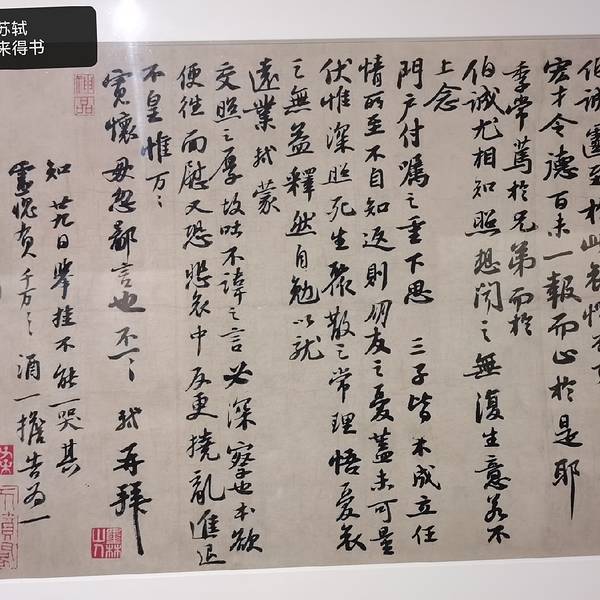 苏轼
来得书
伯诚遽至于此哀愕不可
宏才令德百未一报而止于是耶
季常笃于兄弟而于
伯诚尤相知照想闻之无复生意若不
上念
門户付嘱之重下思三子皆未成立任
情所至不自知返則朋友之憂蓋未可量
伏惟深照死生聚散之常理悟憂哀
之無益釋然自勉以就
遠業軾蒙
交照之厚故吐不諱之言必深察也本欲
便往面慰又恐悲哀中反更撓亂進退
不皇惟万〻
寬懷毋忽鄙言也不一〻軾再拜
知廿九日舉掛不能一哭其
靈愧負千万〻酒一擔告为一